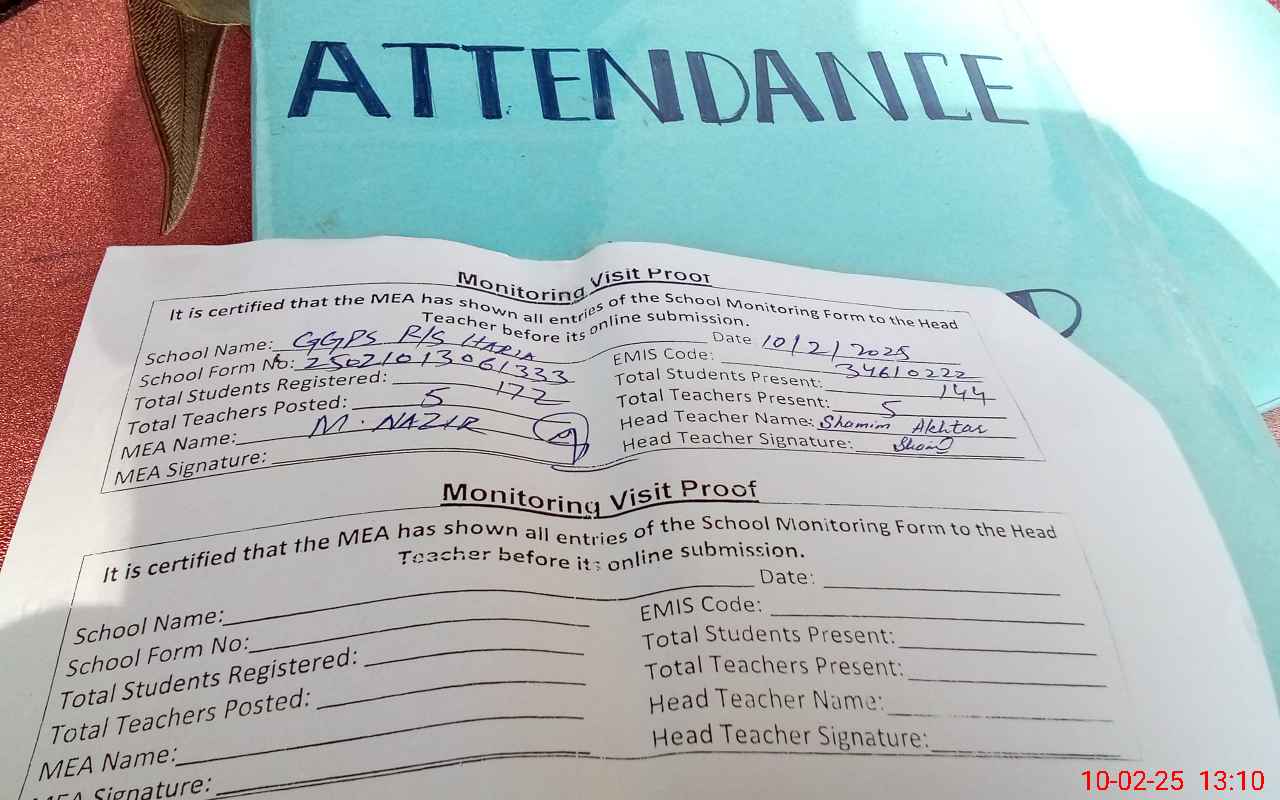 ATTENDANCE
Monitoring Visit Proof
It is certified that the MEA has shown all entries of the School Monitoring Form to the Head
Teacher before its online submission.
School Name: GGPS R/S HARIA Date 10/2/2025
School Form No: 25021013061333 EMIS Code: 34610222
Total Students Registered: 172 Total Students Present: 144
Total Teachers Posted: 5 Total Teachers Present: 5
MEA Name: M. NAZIR Head Teacher Name: Shamim Akhtar
MEA Signature: Head Teacher Signature:
Monitoring Visit Proof
It is certified that the MEA has shown all entries of the School Monitoring Form to the Head
Teacher before its online submission.
School Name: Date:
School Form No: EMIS Code:
Total Students Registered: Total Students Present:
Total Teachers Posted: Total Teachers Present:
MEA Name: Head Teacher Name:
MEA Signature: Head Teacher Signature:
10-02-25 13:10